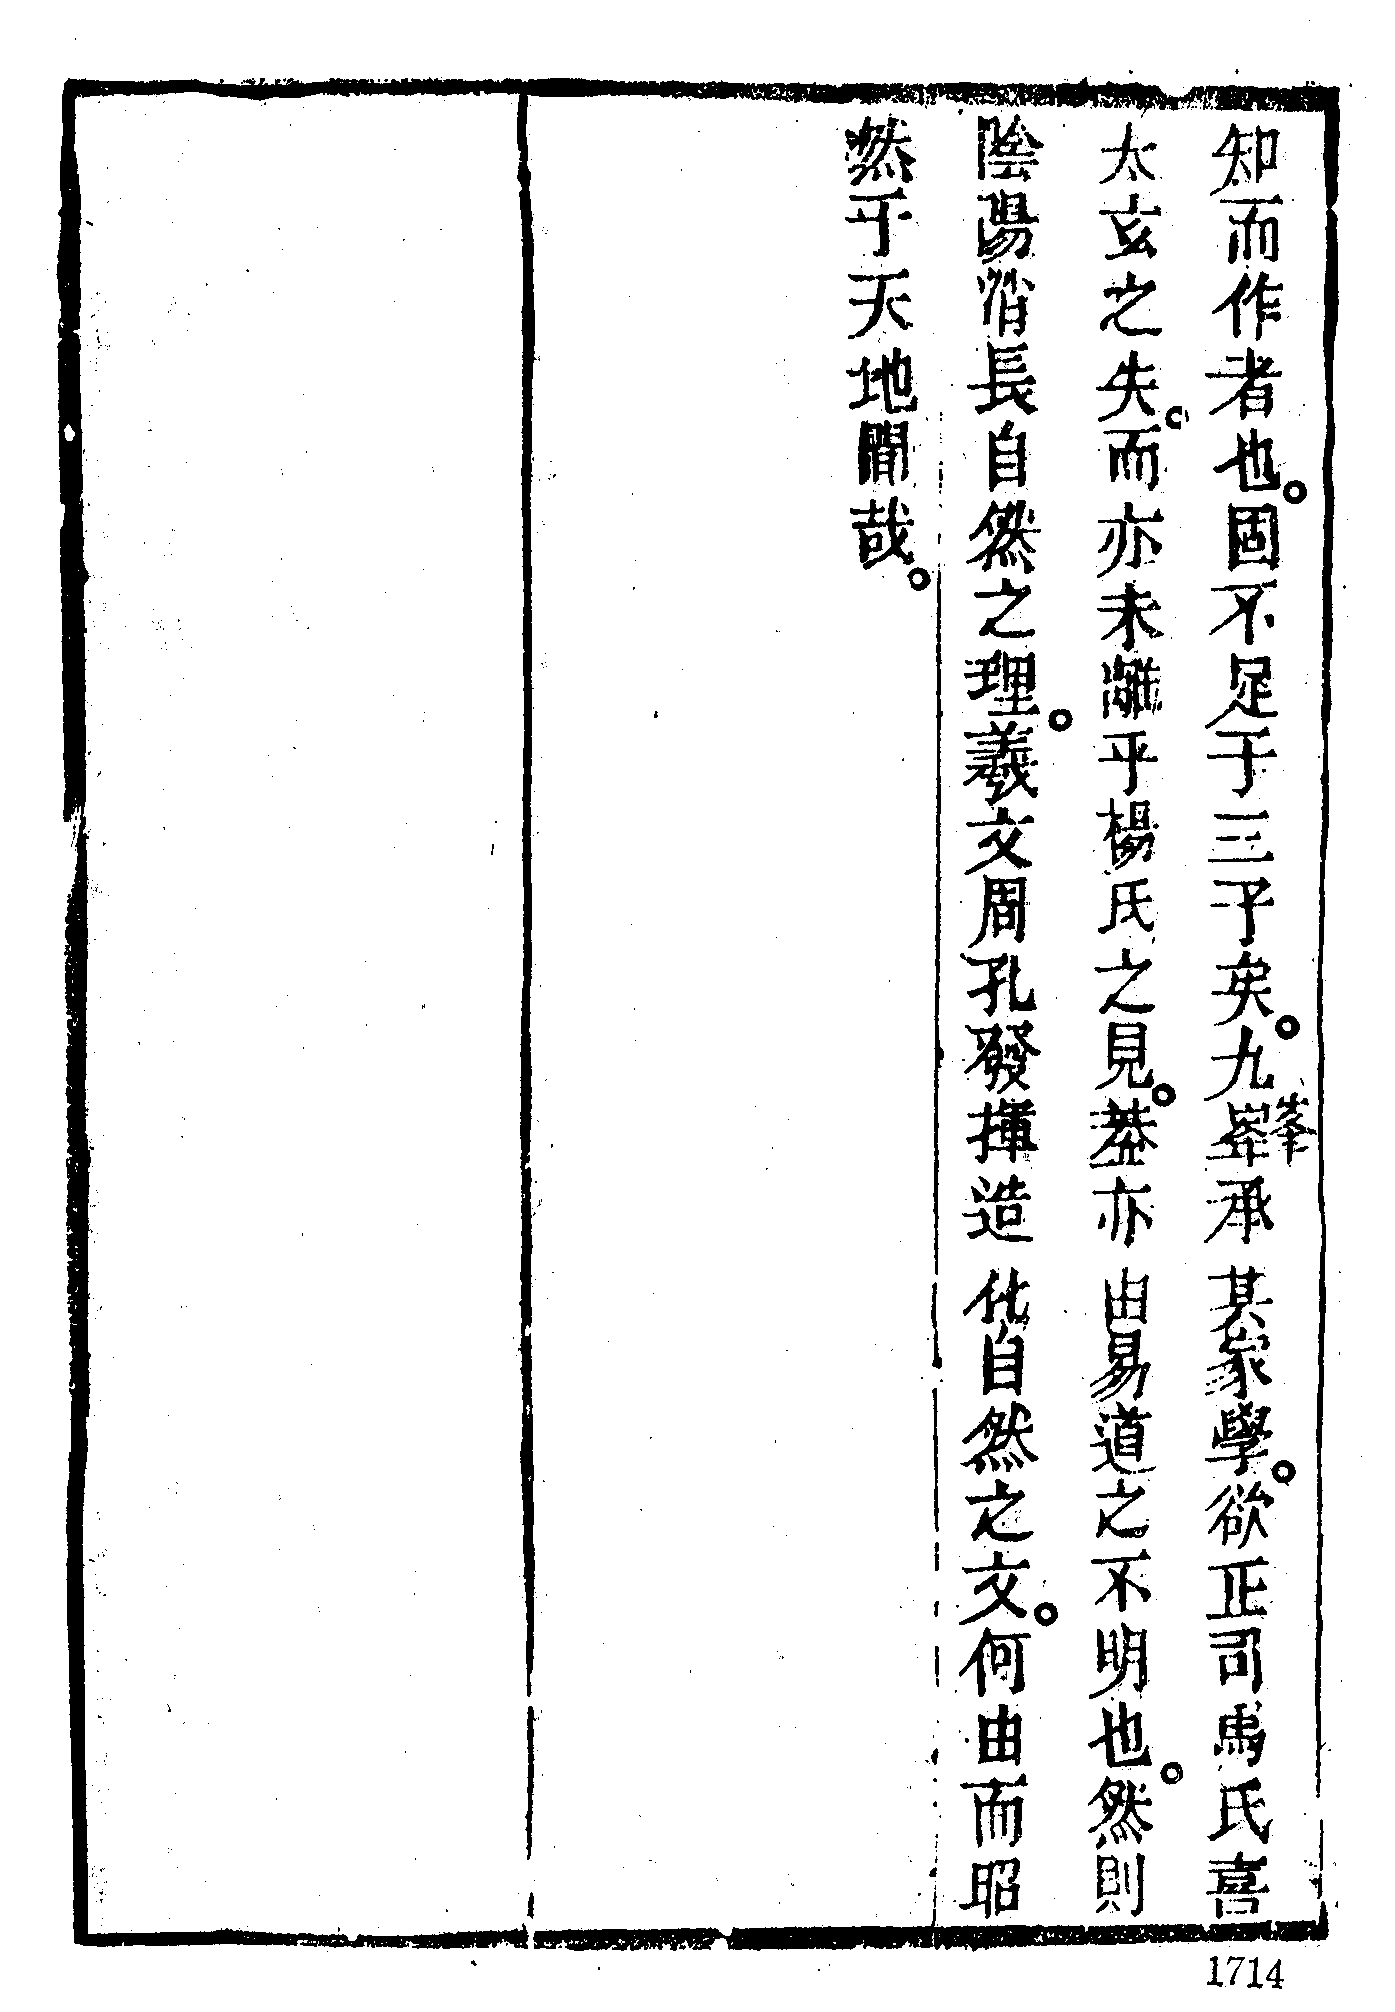 知而作者也。固不足于三予矣。九峯承其家學。欲正司馬氏喜
峯
太玄之失。而亦未離乎楊氏之見。葢亦由易道之不明也。然則
陰陽消長自然之理。羲文周孔發揮造化自然之文。何由而昭
然乎天地間哉。
1714